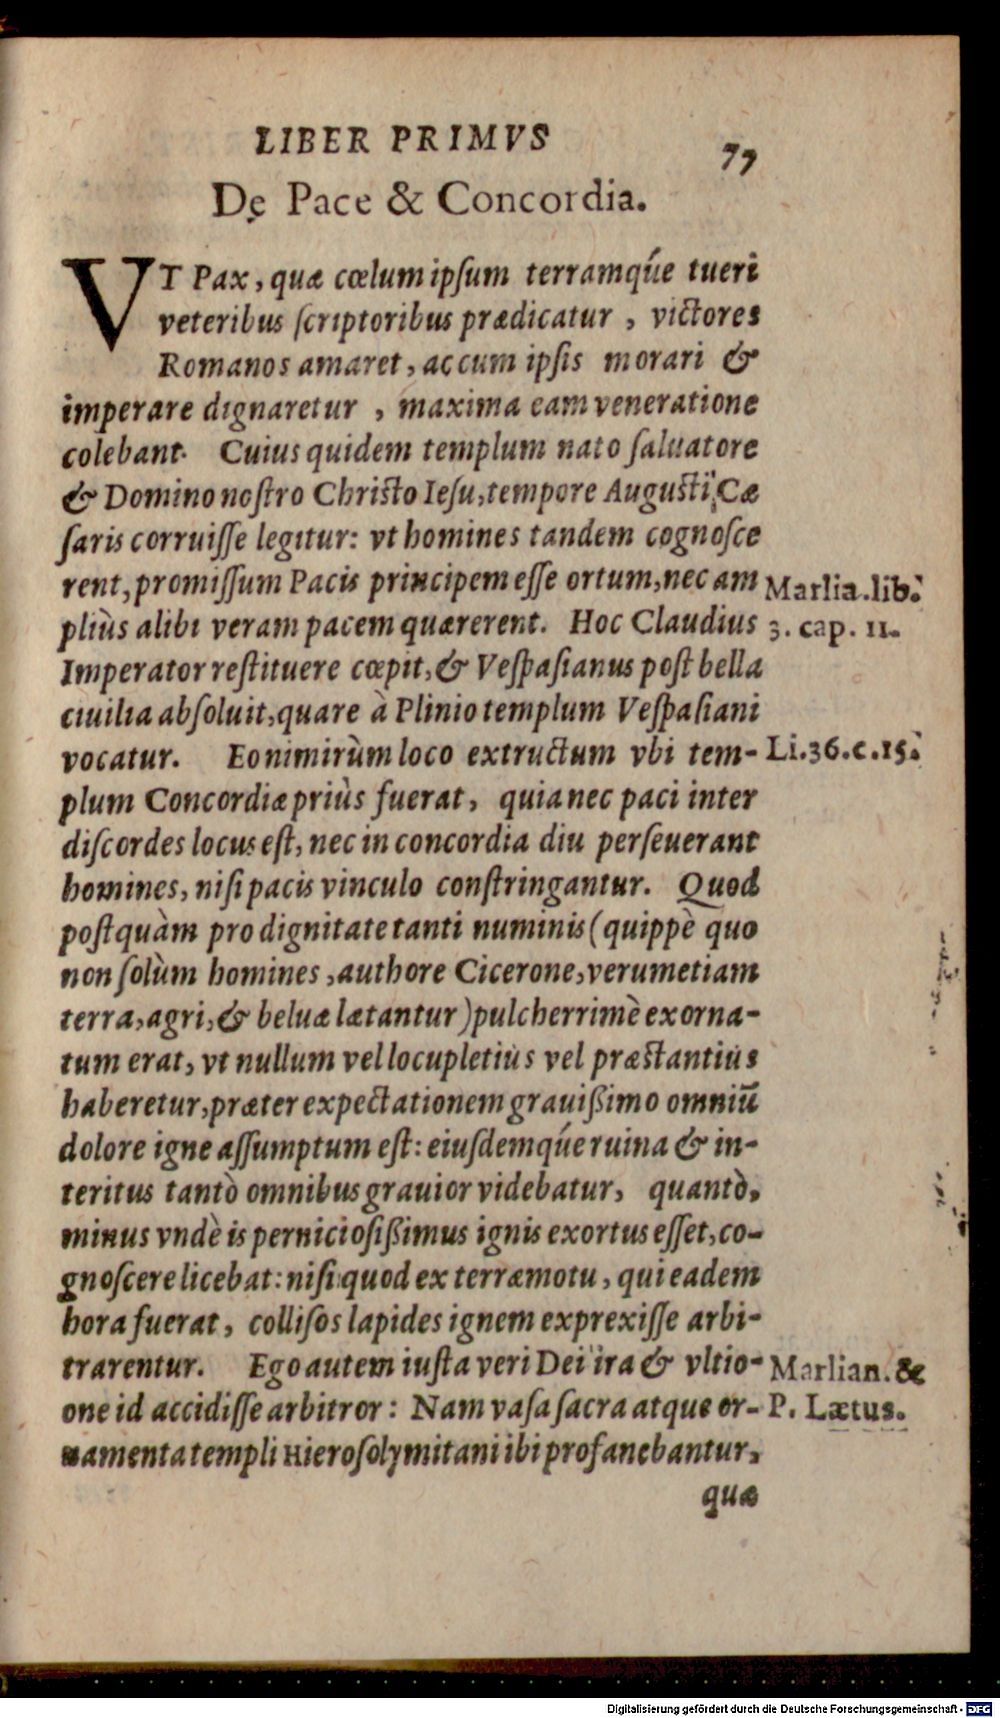 LIBER PRIMVS
77
De Pace & Concordia.
VT Pax, quæ cœlum ipſum terramq́ue tueri
veteribus ſcriptoribus prædicatur , victores
Romanos amaret, ac cum ipſis morari &
imperare dignaretur , maxima eam veneratione
colebant. Cuius quidem templum nato ſaluatore
& Domino noſtro Chriſto Ieſu, tempore Auguſti, Cæ
ſaris corruiſſe legitur: vt homines tandem cognoſce
rent, promiſſum Pacis principem eſſe ortum, nec am
pliùs alibi veram pacem quærerent. Hoc Claudius
Marlia. lib.
3. cap. 11.
Imperator reſtituere cœpit, & Veſpaſianus poſt bella
ciuilia abſoluit, quare à Plinio templum Veſpaſiani
vocatur. Eo nimirùm loco extructum vbi tem-
Li. 36. c. 15.
plum Concordiæ priùs fuerat, quia nec paci inter
diſcordes locus eſt, nec in concordia diu perſeuerant
homines, niſi pacis vinculo conſtringantur. Quod
poſtquàm pro dignitate tanti numinis (quippè quo
non ſolùm homines , authore Cicerone, verumetiam
terra, agri, & beluæ lætantur) pulcherrimè exorna-
tum erat, vt nullum vel locupletiùs vel præſtantiùs
haberetur, præter expectationem grauißimo omniū
dolore igne aſſumptum eſt: eiuſdemq́ue ruina & in-
teritus tantò omnibus grauior videbatur, quantò,
minus vndè is pernicioſißimus ignis exortus eſſet, co-
gnoſcere licebat: niſi quod ex terræmotu, qui eadem
hora fuerat, colliſos lapides ignem exprexiſſe arbi-
trarentur. Ego autem iuſta veri Dei ira & vltio-
one id accidiſſe arbitror: Nam vaſa ſacra atque or-
Marlian. &
P. Lætus.
namenta templi Hieroſolymitani ibi profanebantur,
quæ
Digitalisierung gefördert durch die Deutsche Forschungsgemeinschaft - DFG